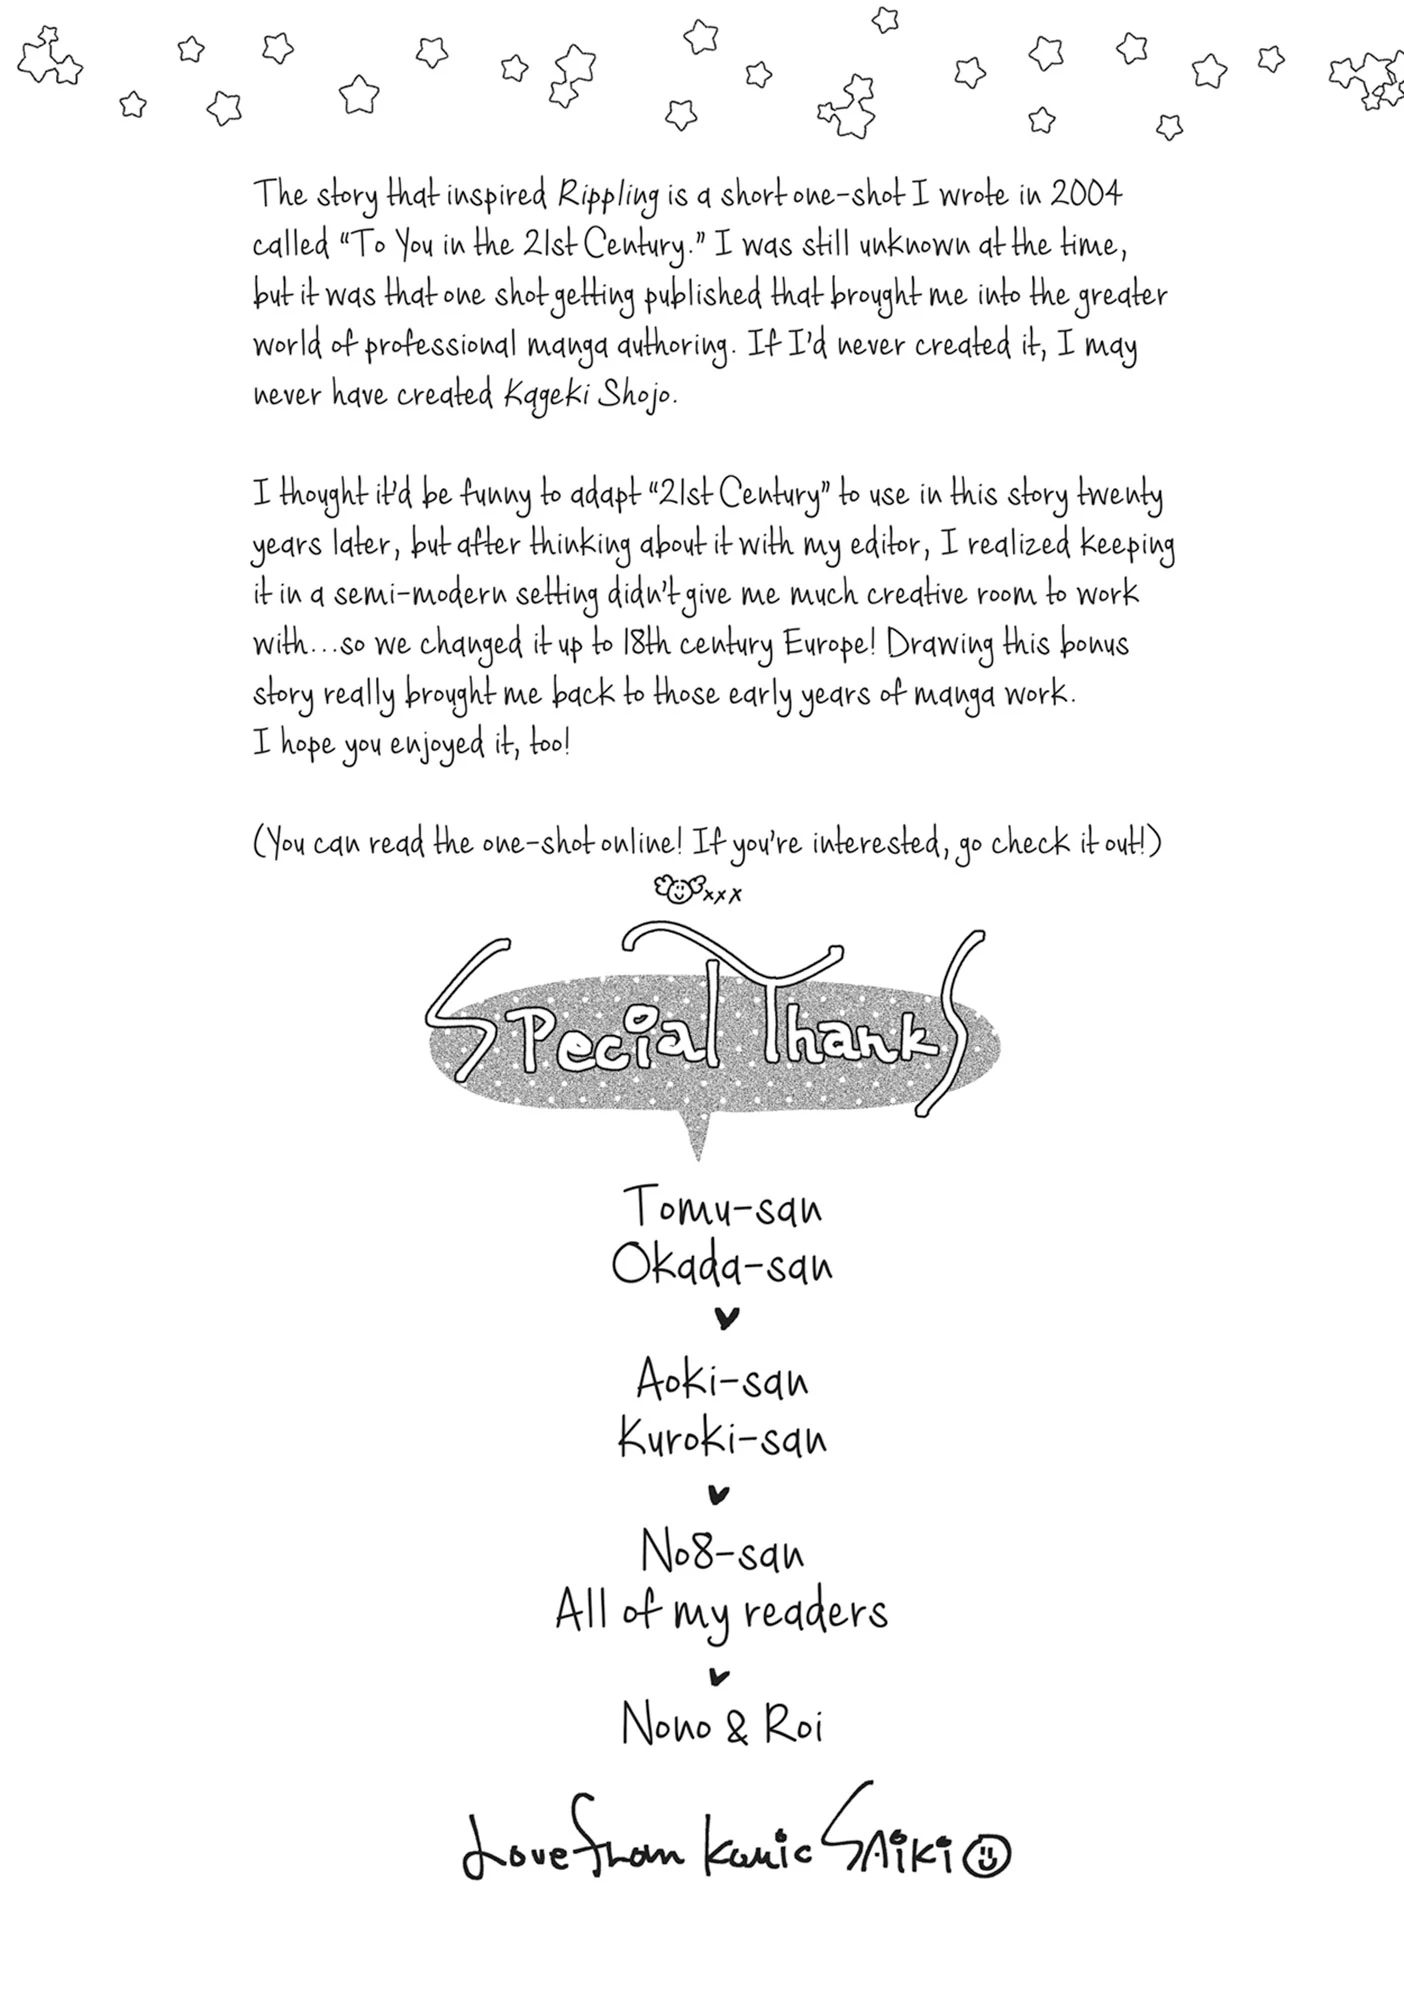 The story that inspired Rippling is a short one-shot I wrote in 2004
called “To You in the 21st Century.” I was still unknown at the time,
but it was that one shot getting published that brought me into the greater
world of professional manga authoring. If I'd never created it, I may
never have created Kageki Shojo.
I thought it'd be funny to adapt “21st Century” to use in this story twenty
years later, but after thinking about it with my editor, I realized keeping
it in a semi-modern setting didn't give me much creative room to work
with...so we changed it up to 18th century Europe! Drawing this bonus
story really brought me back to those early years of manga work.
I hope you enjoyed it, too!
(You can read the one-shot online! If you're interested, go check it out!)
xxx
Special Thanks
Tomu-san
Okada-san
Aoki-san
Kuroki-san
No8-san
All of my readers
Nono & Roi
Love from Kumic SAiKi